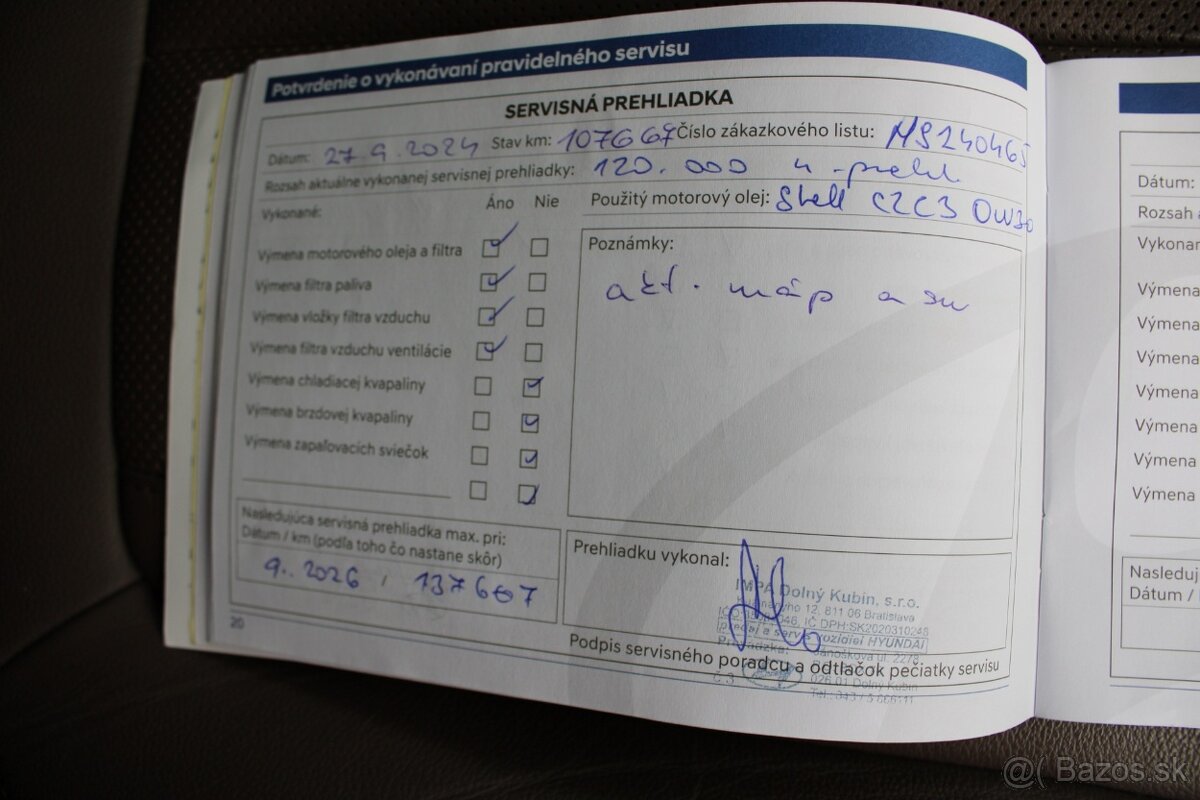 Potvrdenie o vykonávaní pravidelného servisu
SERVISNÁ PREHLIADKA
Dátum: 27.9.2024 Stav km: 107667 Číslo zákazkového listu: MS240465
Rozsah aktuálne vykonanej servisnej prehliadky: 120.000 4.prehl.
Vykonané: Áno Nie
Použitý motorový olej: Shell C2C3 0W30
Výmena motorového oleja a filtra
Výmena filtra paliva
Výmena vložky filtra vzduchu
Výmena filtra vzduchu ventilácie
Výmena chladiacej kvapaliny
Výmena brzdovej kvapaliny
Výmena zapaľovacích sviečok
Poznámky:
akt. máp a sw
Nasledujúca servisná prehliadka max. pri:
Dátum / km (podľa toho čo nastane skôr)
9.. 2026 / 137667
Prehliadku vykonal:
IMPA Dolný Kubín, s.r.o.
12, 811 06 Bratislava
IČ DPH:SK2020310248
Predaj a servis vozidiel HYUNDAI
Prevádzka: Jánoškova ul. 2278,
026 01 Dolný Kubín
Podpis servisného poradcu a odtlačok pečiatky servisu
20
Dátum:
Rozsah
Výmena
Výmena
Výmena
Výmena
Výmena
Výmena
Výmena
Dátum /
@( Bazos.sk